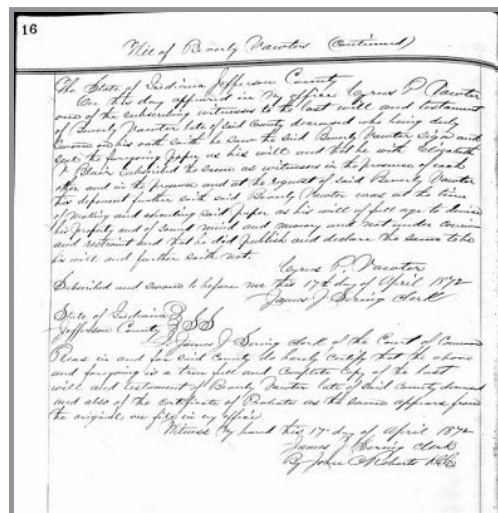 16
Will of Beverly Vawter (Continued)
The State of Indiana Jefferson County
On this day appeared in my office Cyrus P. Vawter
one of the subscribing witnesses to the last will and testament
of Beverly Vawter late of said County deceased who being duly
sworn on his oath saith he saw the said Beverly Vawter sign and
seal the foregoing paper as his will and that he with Elizabeth
Blair subscribed the same as witnesses in the presence of each
other and in the presence and at the request of said Beverly Vawter
this deponent further saith said Beverly Vawter was at the time
of making and executing said paper as his will of full age to devise
his property and of sound mind and memory and not under coercion
and restraint and that he did publish and declare the same to be
his will and further saith not.
Cyrus P. Vawter
Subscribed and sworn to before me this 17th day of April 1872
James J Sering Clerk
State of Indiana
Jefferson County } SS
I James J Sering clerk of the Court of Common
Pleas in and for said County do hereby certify that the above
and foregoing is a true full and complete copy of the last
will and testament of Beverly Vawter late of said County deceased
and also of the certificate of Probate as the same appears from
the original on file in my office
Witness my hand this 17th day of April 1872
James J Sering Clerk
By John Roberts